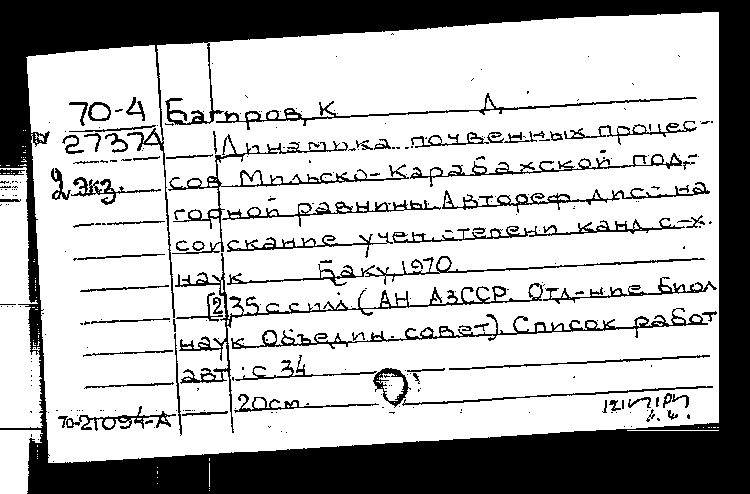 70-4 Багиров, К Д
27374 Динамика почвенных процес-
2 экз. сов Мильско-Карабахской под-
горной равнины. Автореф. дисс. на
соискание учен. степени канд. с-х.
наук Баку, 1970.
[2] 35 с с илл (АН АзССР. Отд-ние биол
наук Объедин. совет). Список работ
авт.: с. 34
20 см.
70-21094-А